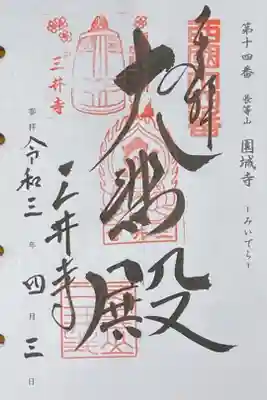 第十四番 長等山 園城寺 -みいでら-
奉拝
大悲殿
三井寺
三井寺
参拝 令和三年四月三日